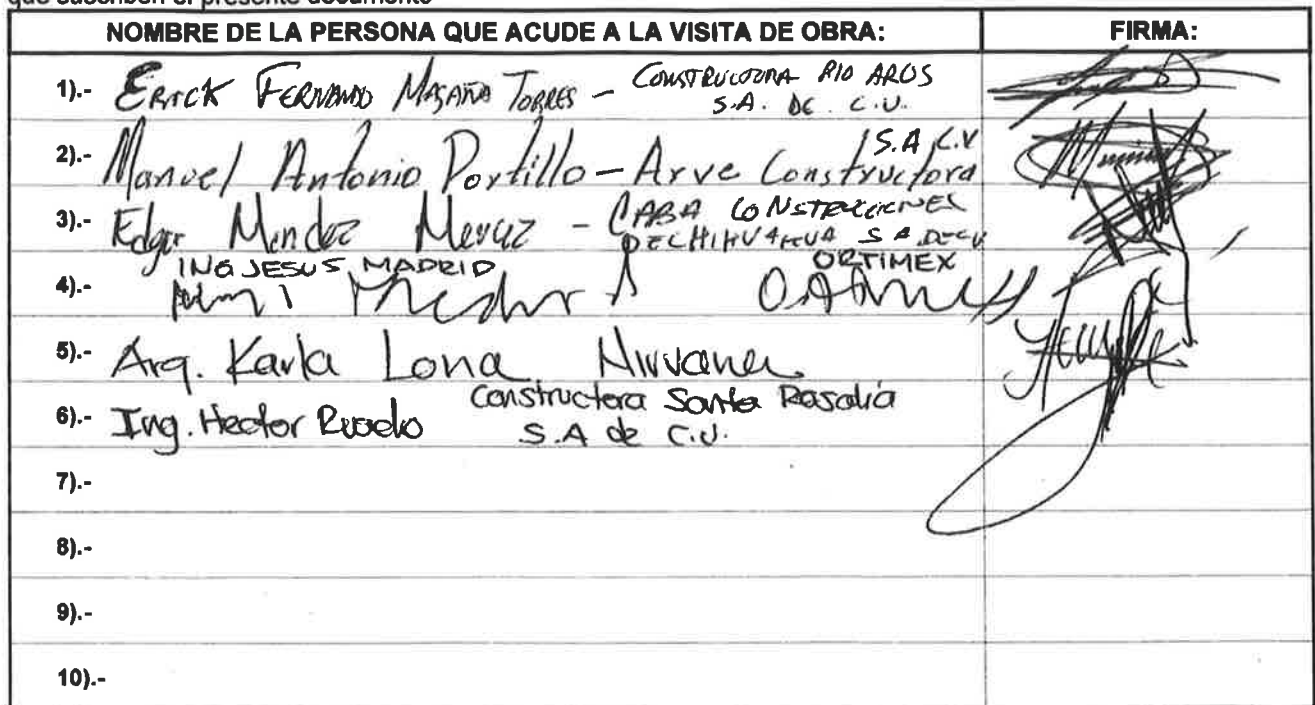 que suscriben el presente documento
NOMBRE DE LA PERSONA QUE ACUDE A LA VISITA DE OBRA: FIRMA:
1).- ERICK FERNANDO MAGAÑA TORRES - CONSTRUCTORA RIO AROS
S.A. DE C.V.
2).- Manuel Antonio Portillo - Arve Constructora S.A C.V
3).- Edgar Mendez Meraz - CABA CONSTRUCCIONES
DE CHIHUAHUA S A DE CV
ING JESUS MADRID ORTIMEX
4).-
5).- Arq. Karla Lona Nirvana
6).- Ing. Hector Rosado Constructora Santa Rosalia
S.A de C.V.
7).-
8).-
9).-
10).-